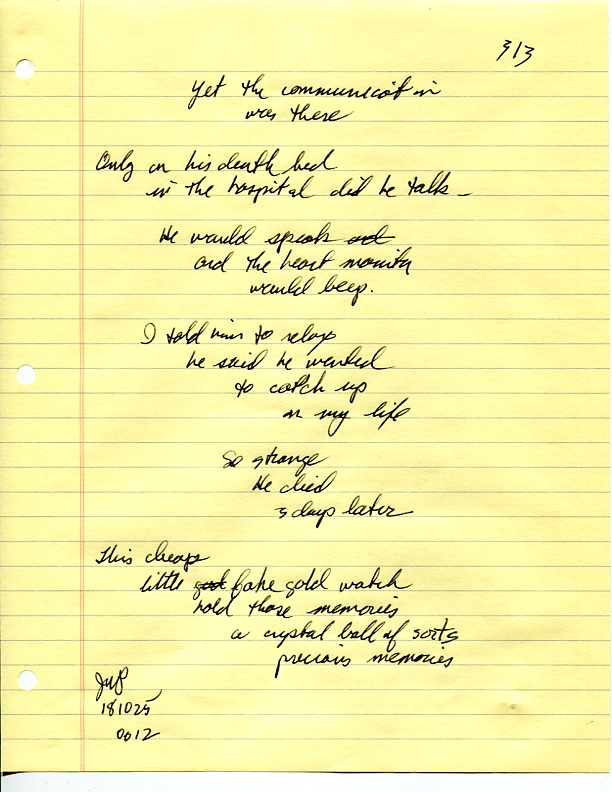 313
Yet the communication
was there
Only on his death bed
in the hospital did he talk -
He would speak and
and the heart monitor
would beep.
I told him to relax
he said he wanted
to catch up
on my life
So strange
He died
3 days later
This cheap
little gold fake gold watch
hold those memories
a crystal ball of sorts
precious memories
181025
0012